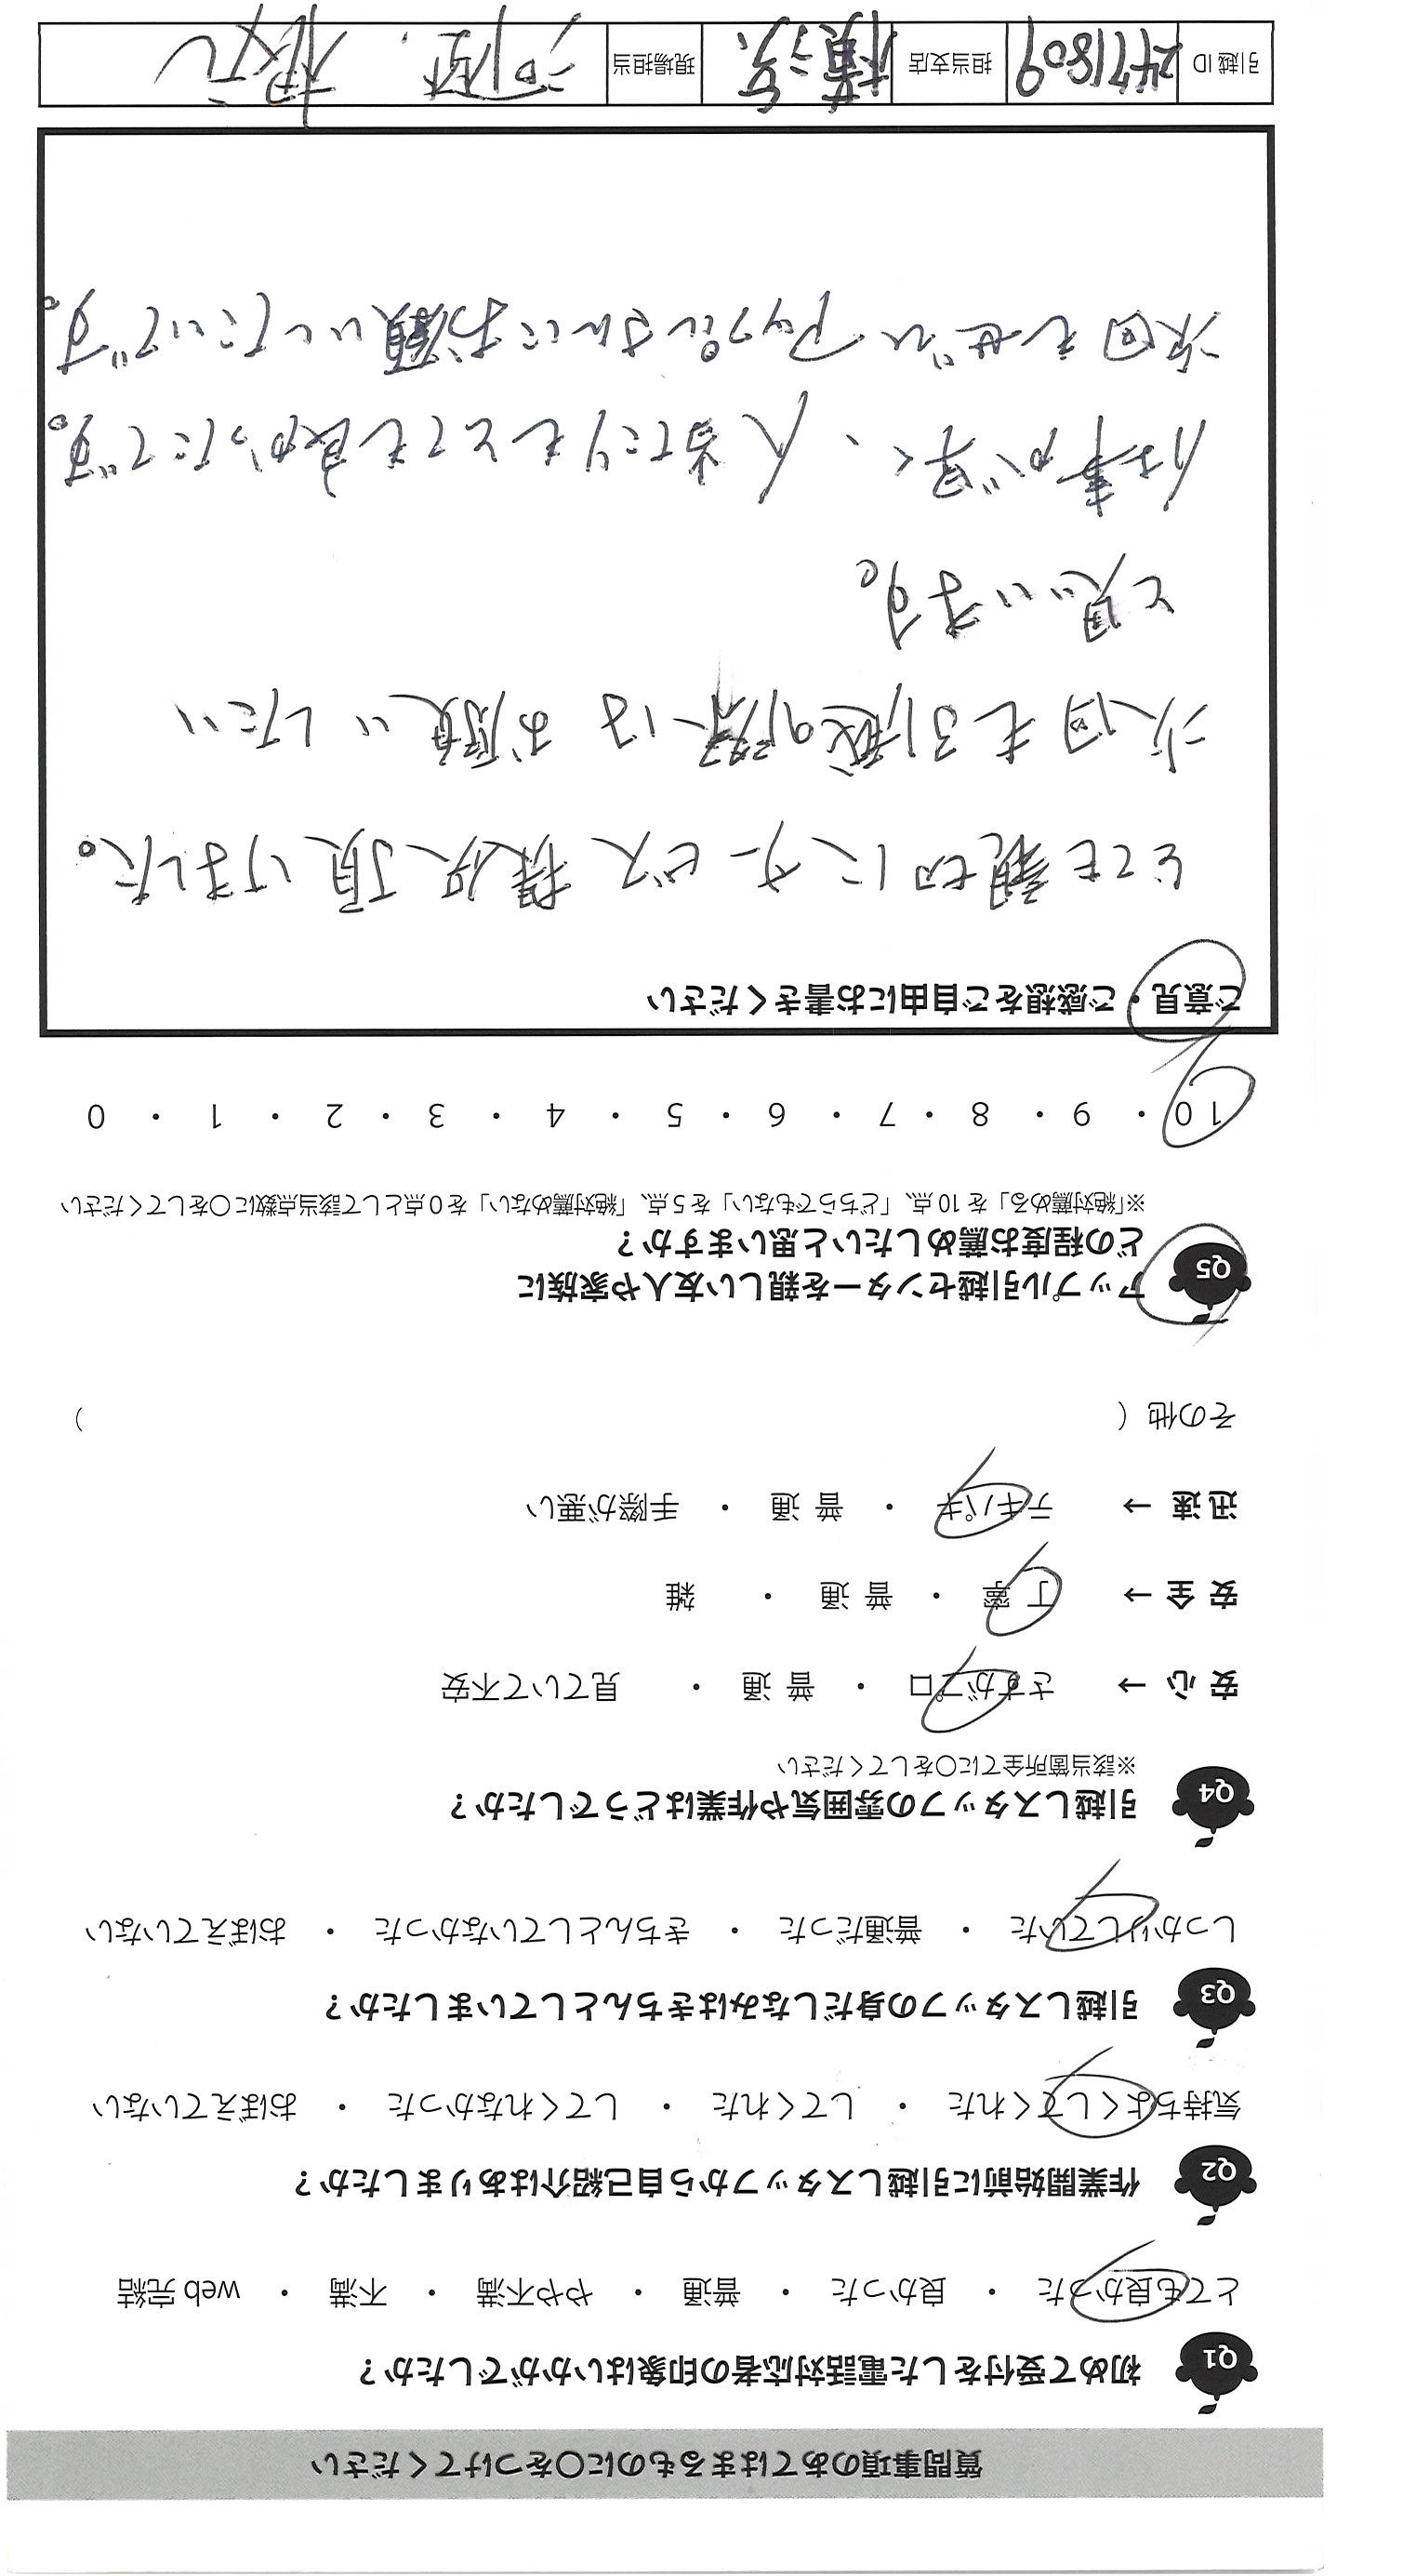 質問事項のあてはまるものに○をつけてください
Q1 初めて受付をした電話対応者の印象はいかがでしたか？
とても良かった ・ 良かった ・ 普通 ・ やや不満 ・ 不満 ・ web 完結
Q2 作業開始前に引越しスタッフから自己紹介はありましたか？
気持ちよくしてくれた ・ してくれた ・ してくれなかった ・ おぼえていない
Q3 引越しスタッフの身だしなみはきちんとしていましたか？
しっかりしていた ・ 普通だった ・ きちんとしていなかった ・ おぼえていない
Q4 引越しスタッフの雰囲気や作業はどうでしたか？
※該当箇所全てに○をしてください
安 心 → さすがプロ ・ 普 通 ・ 見ていて不安
安 全 → 丁 寧 ・ 普 通 ・ 雑
迅 速 → テキパキ ・ 普 通 ・ 手際が悪い
その他（ ）
Q5 アップル引越センターを親しい友人や家族に
どの程度お薦めしたいと思いますか？
※「絶対薦める」を 10 点、「どちらでもない」を 5 点、「絶対薦めない」を 0 点として該当点数に○をしてください
10 ・ 9 ・ 8 ・ 7 ・ 6 ・ 5 ・ 4 ・ 3 ・ 2 ・ 1 ・ 0
ご意見・ご感想をご自由にお書きください
とても親切にサービス提供頂けました。
次回も引越の際は お願いしたい
と思います。
仕事が早く、人当たりもとても良かったです。
次回もぜひアップルさんにお願いしたいです。
引越 ID 2471809 担当支店 横浜 現場担当